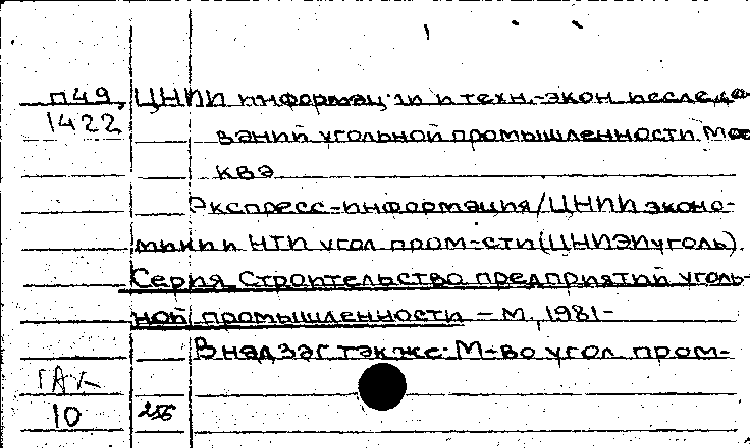 п49, ЦНИИ информац.ии и техн.-экон. исследо-
1422 ваний угольной промышленности. Мос-
ква
Экспресс-информация/ЦНИИ эконо-
мики и НТИ угол. пром-сти (ЦНИЭИуголь).
Серия Строительство предприятий уголь-
ной промышленности – М., 1981-
В надзаг. также: М-во угол. пром-
10 256